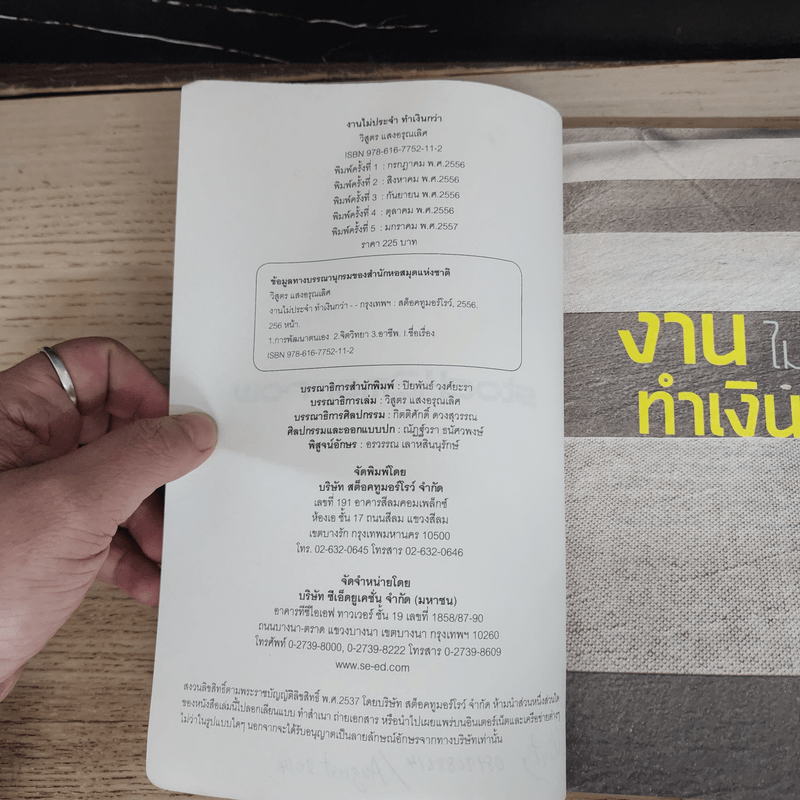 งานไม่ประจำ ทำเงินกว่า
วิสูตร แสงอรุณเลิศ
ISBN 978-616-7752-11-2
พิมพ์ครั้งที่ 1 : กรกฎาคม พ.ศ.2556
พิมพ์ครั้งที่ 2 : สิงหาคม พ.ศ.2556
พิมพ์ครั้งที่ 3 : กันยายน พ.ศ.2556
พิมพ์ครั้งที่ 4 : ตุลาคม พ.ศ.2556
พิมพ์ครั้งที่ 5 : มกราคม พ.ศ.2557
ราคา 225 บาท
ข้อมูลทางบรรณานุกรมของสำนักหอสมุดแห่งชาติ
วิสูตร แสงอรุณเลิศ
งานไม่ประจำ ทำเงินกว่า - - กรุงเทพฯ : สต็อคทูมอร์โรว์, 2556.
256 หน้า.
1.การพัฒนาตนเอง 2.จิตวิทยา 3.อาชีพ. I.ชื่อเรื่อง
ISBN 978-616-7752-11-2
บรรณาธิการสำนักพิมพ์ : ปิยพันธ์ วงศ์ยะรา
บรรณาธิการเล่ม : วิสูตร แสงอรุณเลิศ
บรรณาธิการศิลปกรรม : กิตติศักดิ์ ดวงสุวรรณ
ศิลปกรรมและออกแบบปก : ณัฏฐ์วรา ธนัศวพงษ์
พิสูจน์อักษร : อรวรรณ เลาหสินนุรักษ์
จัดพิมพ์โดย
บริษัท สต็อคทูมอร์โรว์ จำกัด
เลขที่ 191 อาคารสีลมคอมเพล็กซ์
ห้องเอ ชั้น 17 ถนนสีลม แขวงสีลม
เขตบางรัก กรุงเทพมหานคร 10500
โทร. 02-632-0645 โทรสาร 02-632-0646
จัดจำหน่ายโดย
บริษัท ซีเอ็ดยูเคชั่น จำกัด (มหาชน)
อาคารทีซีไอเอฟ ทาวเวอร์ ชั้น 19 เลขที่ 1858/87-90
ถนนบางนา-ตราด แขวงบางนา เขตบางนา กรุงเทพฯ 10260
โทรศัพท์ 0-2739-8000, 0-2739-8222 โทรสาร 0-2739-8609
www.se-ed.com
สงวนลิขสิทธิ์ตามพระราชบัญญัติลิขสิทธิ์ พ.ศ.2537 โดยบริษัท สต็อคทูมอร์โรว์ จำกัด ห้ามนำส่วนหนึ่งส่วนใด
ของหนังสือเล่มนี้ไปลอกเลียนแบบ ทำสำเนา ถ่ายเอกสาร หรือนำไปเผยแพร่บนอินเตอร์เน็ตและเครือข่ายต่างๆ
ไม่ว่าในรูปแบบใดๆ นอกจากจะได้รับอนุญาตเป็นลายลักษณ์อักษรจากทางบริษัทเท่านั้น
งาน ไม่
ทำเงิน